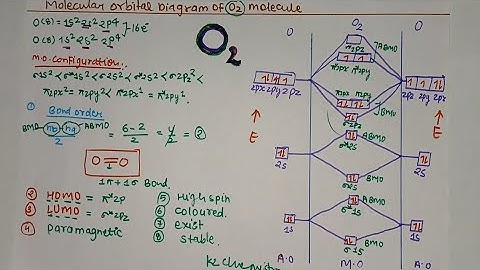 Molecular orbital Diagram of O2 molecule
O(8)= 1s² 2s² 2p⁴
O(8) 1s² 2s² 2p⁴
}→16e⁻
M.O. Configuration:-
σ1s² < σ*1s² < σ2s² < σ*2s² < σ2pz² <
π2px² = π2py² < π*2px¹ = π*2py¹.
① Bond order
BMO nb - na ABMO = 6-2 = 4/2 = ②
2 2
O=O
1π + 1σ Bond.
② HOMO = π*2p
③ LUMO = σ*2pz
④ paramagnetic
⑤ High spin
⑥ coloured.
⑦ exist
⑧ stable.
O2
O O2 O
ABMO
π*2px π*2py
2px 2py 2pz
2pz 2py 2px
π2px π2py
BMO
σ2pz
E E
ABMO
σ*2s
2s 2s
BMO
σ2s
ABMO
σ*1s
1s 1s
BMO
σ1s
A.O M.O A.O